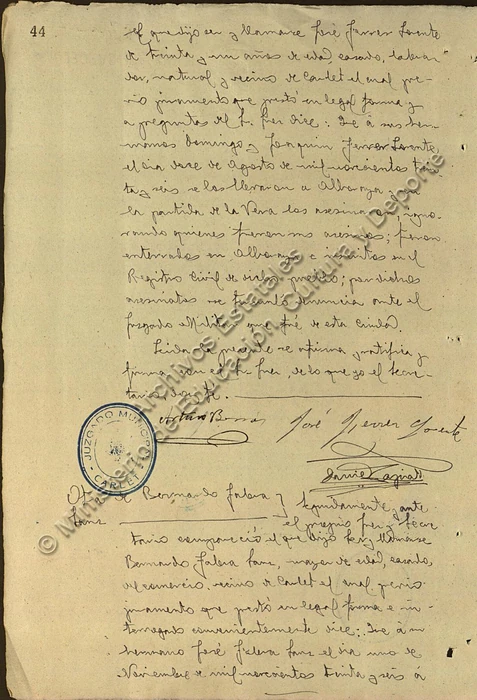 44
el que dijo ser y llamarse José Ferrer Lorente
de treinta y un años de edad, casado, labra-
dor, natural y vecino de Carlet el cual pre-
vio juramento que prestó en legal forma y
a preguntas del Sr. Juez dice: Que á sus her-
manos Domingo y Joaquin Ferrer Lorente
el día doce de Agosto de mil novecientos trein-
ta y seis se los llevaron a Alberique y en
la partida de la los asesinaron, igno-
rando quienes fueron sus asesinos; fueron
enterrados en e inscritos en el
Registro Civil de dicho pueblo; por dichos
asesinatos se presentó denuncia ante el
Juzgado Militar que fué de esta Ciudad.
Leida la presente se afirma y ratifica y
firma con el Sr. Juez, de lo que yo el Secre-
tario
José Ferrer Lorente
JUZGADO MUNICIPAL
CARLET
de Bernardo
Sanz y seguidamente, ante
el propio Juez y Secre-
tario compareció el que dijo ser y llamarse
Bernardo Sanz, mayor de edad, casado,
del comercio, vecino de Carlet el cual previo
juramento que prestó en legal forma e in-
terrogado convenientemente dice: Que á su
hermano José Sanz el día uno de
Noviembre de mil novecientos treinta y seis á
© Archivos Estatales
Ministerio de Educación, Cultura y Deporte